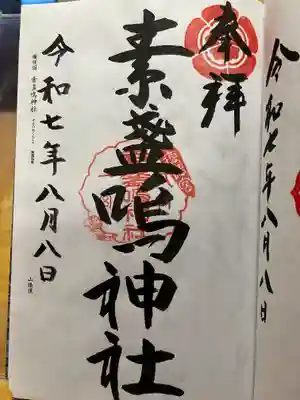 令和七年八月八日
奉拝
素盞嗚神社
素盞嗚神社
令和七年八月八日